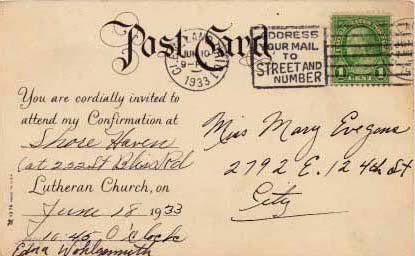 Post Card
CLEVELAND, OHIO
JUN 10
9-
1933
ADDRESS
YOUR MAIL
TO
STREET AND
NUMBER
1 CENT 1
You are cordially invited to
attend my Confirmation at
Shore Haven
(at 222 St
Lutheran Church, on
June 18 1933
10:45 O'Clock
Edna Wohlsmuth
Miss Mary Evegens
2792 E. 124th St
City